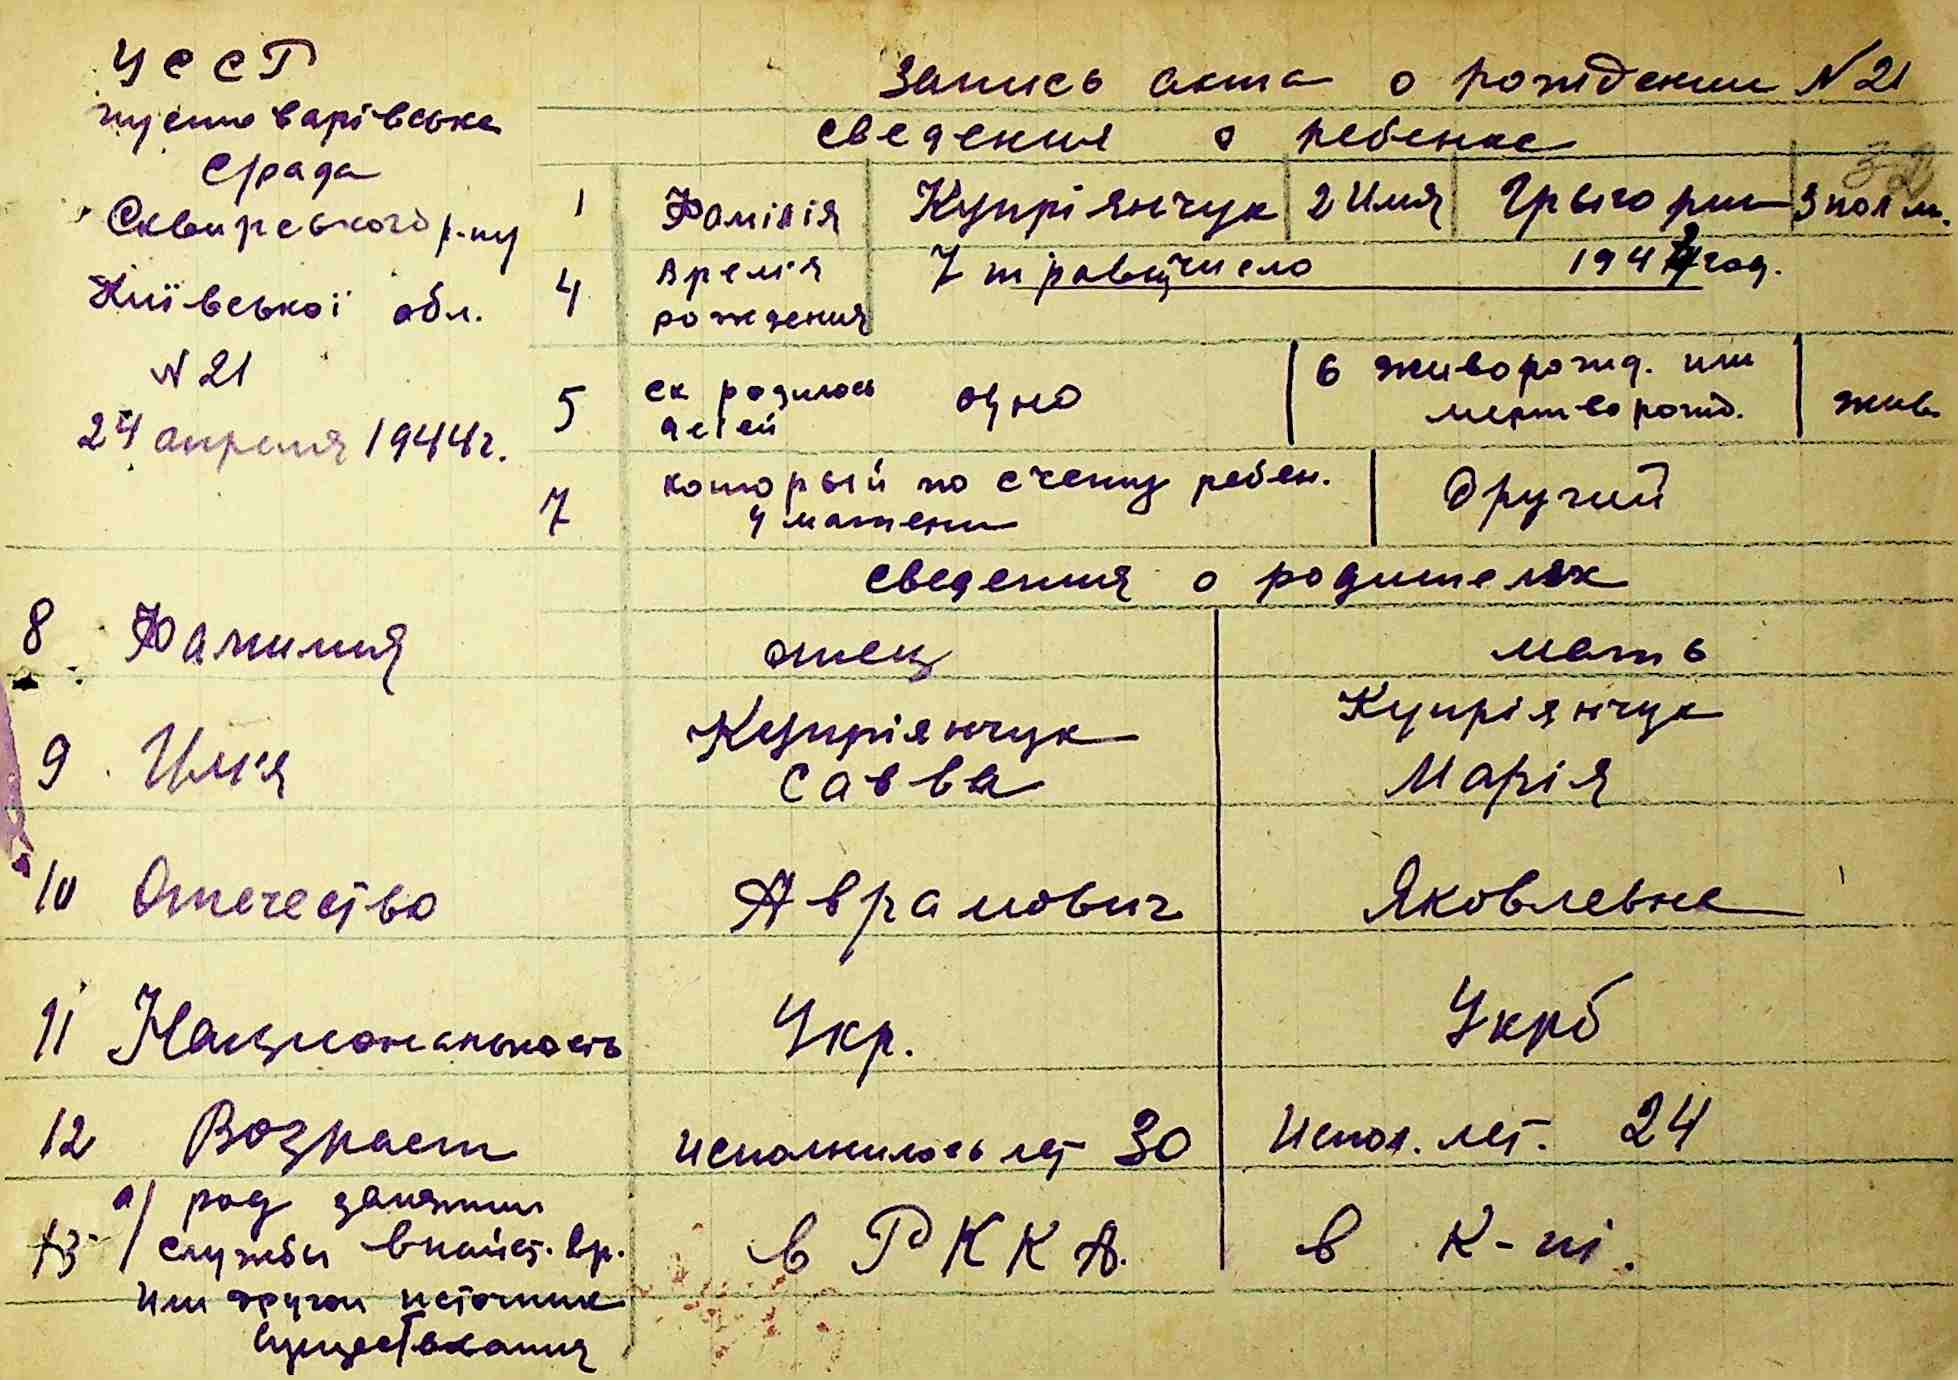 УССР
пустоварівська
с/рада
Сквирського р-ну
Київської обл.
N 21
24 апреля 1944 г.
Запись акта о рождении N 21
сведения о ребенке
32
1 Фамілія Купріянчук 2 Имя Грыгорий 3 пол м.
4 время рождения 7 травц число 1944 год.
5 ск родилось детей одно 6 живорожд. или мертворожд. жив.
7 который по счету ребен. у матери другий
сведения о родителях
8 Фамилия отец мать
Купріянчук Купріянчук
9 Имя Савва Марія
10 Отечество Аврамович Яковлевна
11 Национальность Укр. Укр
12 Возраст исполнилось лет 30 Испол. лет. 24
13 а/ род занятии
службы в наст. вр. в РККА. в к-пі.
или другой источник
существования